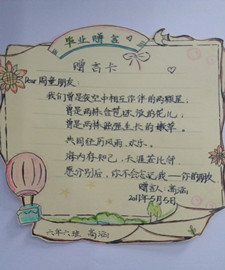 毕业赠言
赠言卡
Dear 周童朋友:
我们曾是夜空中相互作伴的两颗星,
曾是两株含苞欲放的花儿,
曾是两株幽幽生长的嫩草。
共同经历风雨、欢乐。
海内存知己,天涯若比邻。
愿分别后,你不会忘记我——你的朋友
赠言人:高涵
2017年5月5日
六年六班 高涵